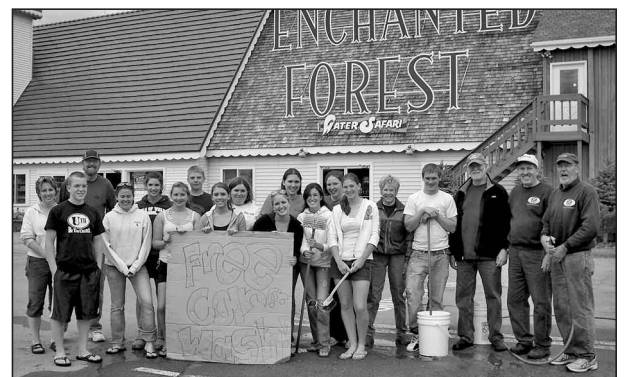 ENCHANTED
FOREST
WATER SAFARI
Free
Car
Wash